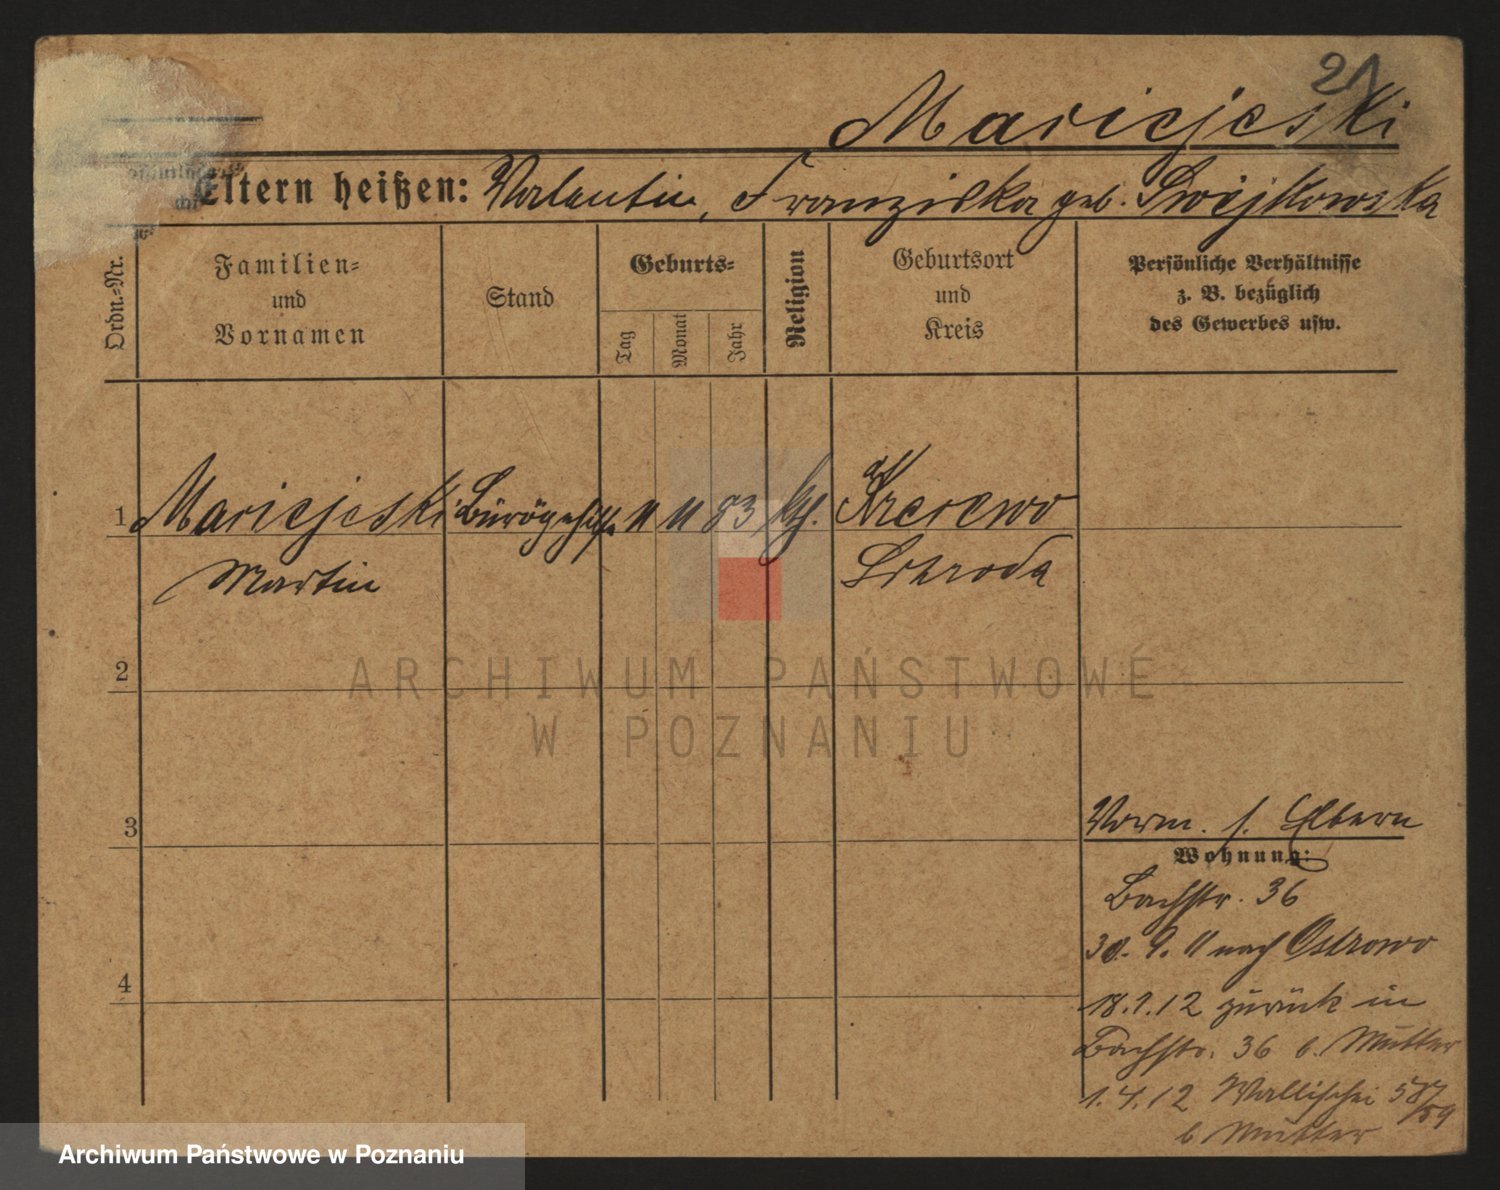 21
Maciejeski
Eltern heißen: Valentin, Franziska geb. Swojkowska
Ordn.-Nr.
Familien-
und
Vornamen
Stand
Geburts-
Tag
Monat
Jahr
Religion
Geburtsort
und
Kreis
Persönliche Verhältnisse
z. B. bezüglich
des Gewerbes usw.
1 Maciejeski Bürogehilfe 11 11 83 kth.
Martin
Schroda
2
3
4
Vorm. s. Eltern
Wohnung:
Bachstr. 36
30. 9. 11 nach Ostrowo
18.1.12 zurück in
Bachstr. 36 b. Mutter
1.4.12 Wallischei 58/59
b Mutter
ARCHIWUM PAŃSTWOWE
W POZNANIU
Archiwum Państwowe w Poznaniu